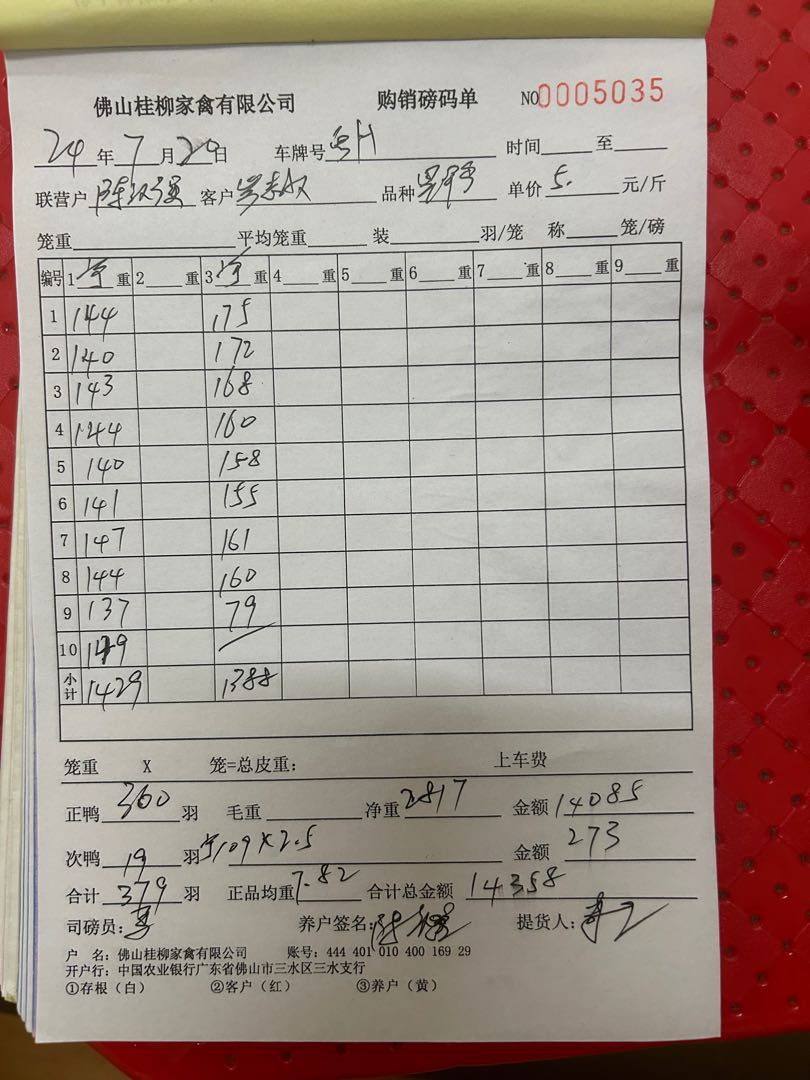 佛山桂柳家禽有限公司 购销磅码单 NO0005035
24年7月20日 车牌号粤H 时间 至
联营户 客户 品种 单价5.元/斤
笼重 平均笼重 装 羽/笼 称 笼/磅
编号 1 重 2 重 3 重 4 重 5 重 6 重 7 重 8 重 9 重
1 144 175
2 140 172
3 143 168
4 144 160
5 140 158
6 141 155
7 147 161
8 144 160
9 137 79
10 149
小计 1429 1388
笼重 X 笼=总皮重: 上车费
正鸭360羽 毛重 净重2817 金额14085
次鸭19羽 109×2.5 金额273
合计379羽 正品均重7.82 合计总金额14358
司磅员: 养户签名: 提货人:
户 名: 佛山桂柳家禽有限公司 账号: 444 401 010 400 169 29
开户行: 中国农业银行广东省佛山市三水区三水支行
①存根(白) ②客户(红) ③养户(黄)